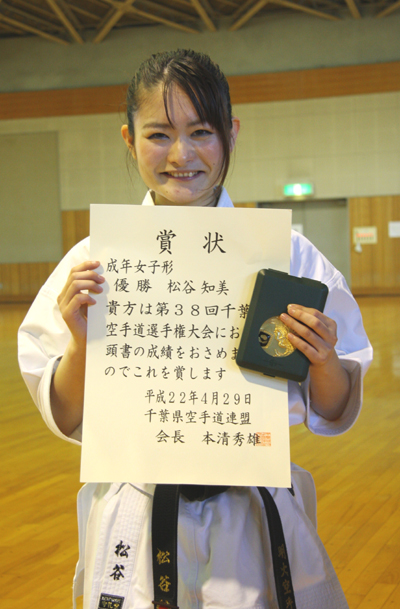 賞状
成年女子形
優勝 松谷 知美
貴方は第38回千葉
空手道選手権大会にお
頭書の成績をおさめま
のでこれを賞します
平成22年4月29日
千葉県空手道連盟
会長 本清秀雄
松谷
松谷